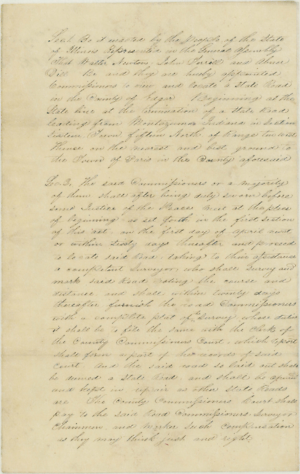 Sec 1. Be it enacted by the People of the State
of Illinois represented in the General Assembly
That Walter
Be and they are hereby appointed
Commissioners to view and locate a State Road
in the County of Edgar Beginning at the
State line at the termination of a State Road
leading from Montezuma Indiana in section
Town fifteen North of Range ten west
thence on the nearest and best ground to
the Town of Paris in the County aforesaid
Sec 2. The said Commissioners or a majority
of them shall after being duly sworn before
some Justice of the Peace meet at the place
of beginning as set forth in the first section
of this act on the first day of April next
or within sixty days thereafter and proceed
to locate said road taking to their assistance
a competent Surveyor who shall survey and
mark said Road noting the course and
distance and shall within twenty days
thereafter furnish the road Commissioners
with a complete plat of Survey whose duty
it shall be to file the same with the Clerk of
the County Commissioners Court which
shall form a part of the records of said
Court and the said road so laid out shall
be deemed a State Road and shall be opened
and kept in repair as other State Roads
are The County Commissioners Court shall
pay to the said Road Commissioners Surveyor
Chainmen and marker such compensation
as they may think just and right